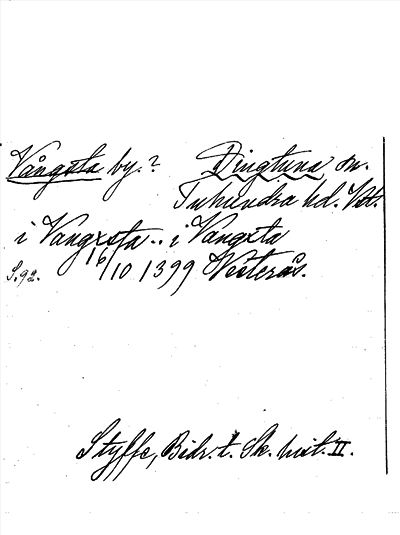 Vångsta by.? Dingtuna sn.
Tuhundra hd. Vstm.
i Vangxsta .. i Vangxta
S. 92. 16/10 1399 Vesterås.
Styffe, Bidr. t. Sk. hist. II.